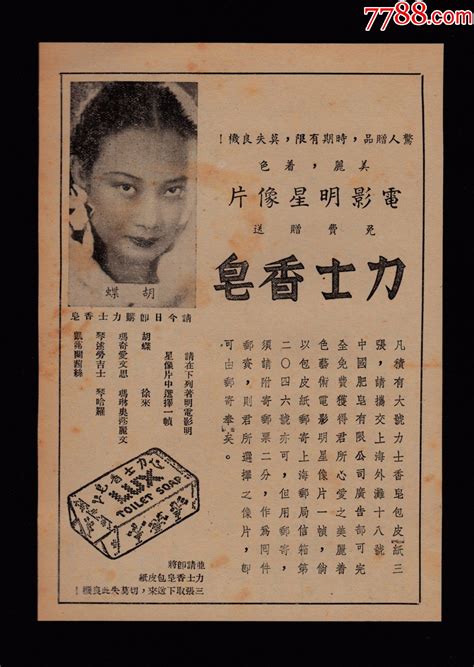 7788.com
驚人贈品，時期有限，莫失良機！
美麗，着色
電影明星像片
免費贈送
力士香皂
凡積有大號力士香皂包皮紙三
張，請攜交上海外灘十八號
中國肥皂有限公司廣告部可完
全免費獲得君所心愛之美麗着
色藝術電影明星像片一幀，倘
以包皮紙郵寄上海郵局信箱第
二〇四六號亦可，但用郵寄，
須請附寄郵票二分，作為回件
郵資，則君所選擇之像片，即
可由郵寄奉矣。
胡蝶
請今日即購力士香皂
請在下列著明電影明
星像片中選擇一幀
胡蝶 徐來
瑪奇愛文思 瑪琳奧莎麗文
琴逑勞吉士 琴哈羅
力士香皂
LUX
TOILET SOAP
並請即將
力士香皂包皮紙
三張取下送來，切莫失此良機！